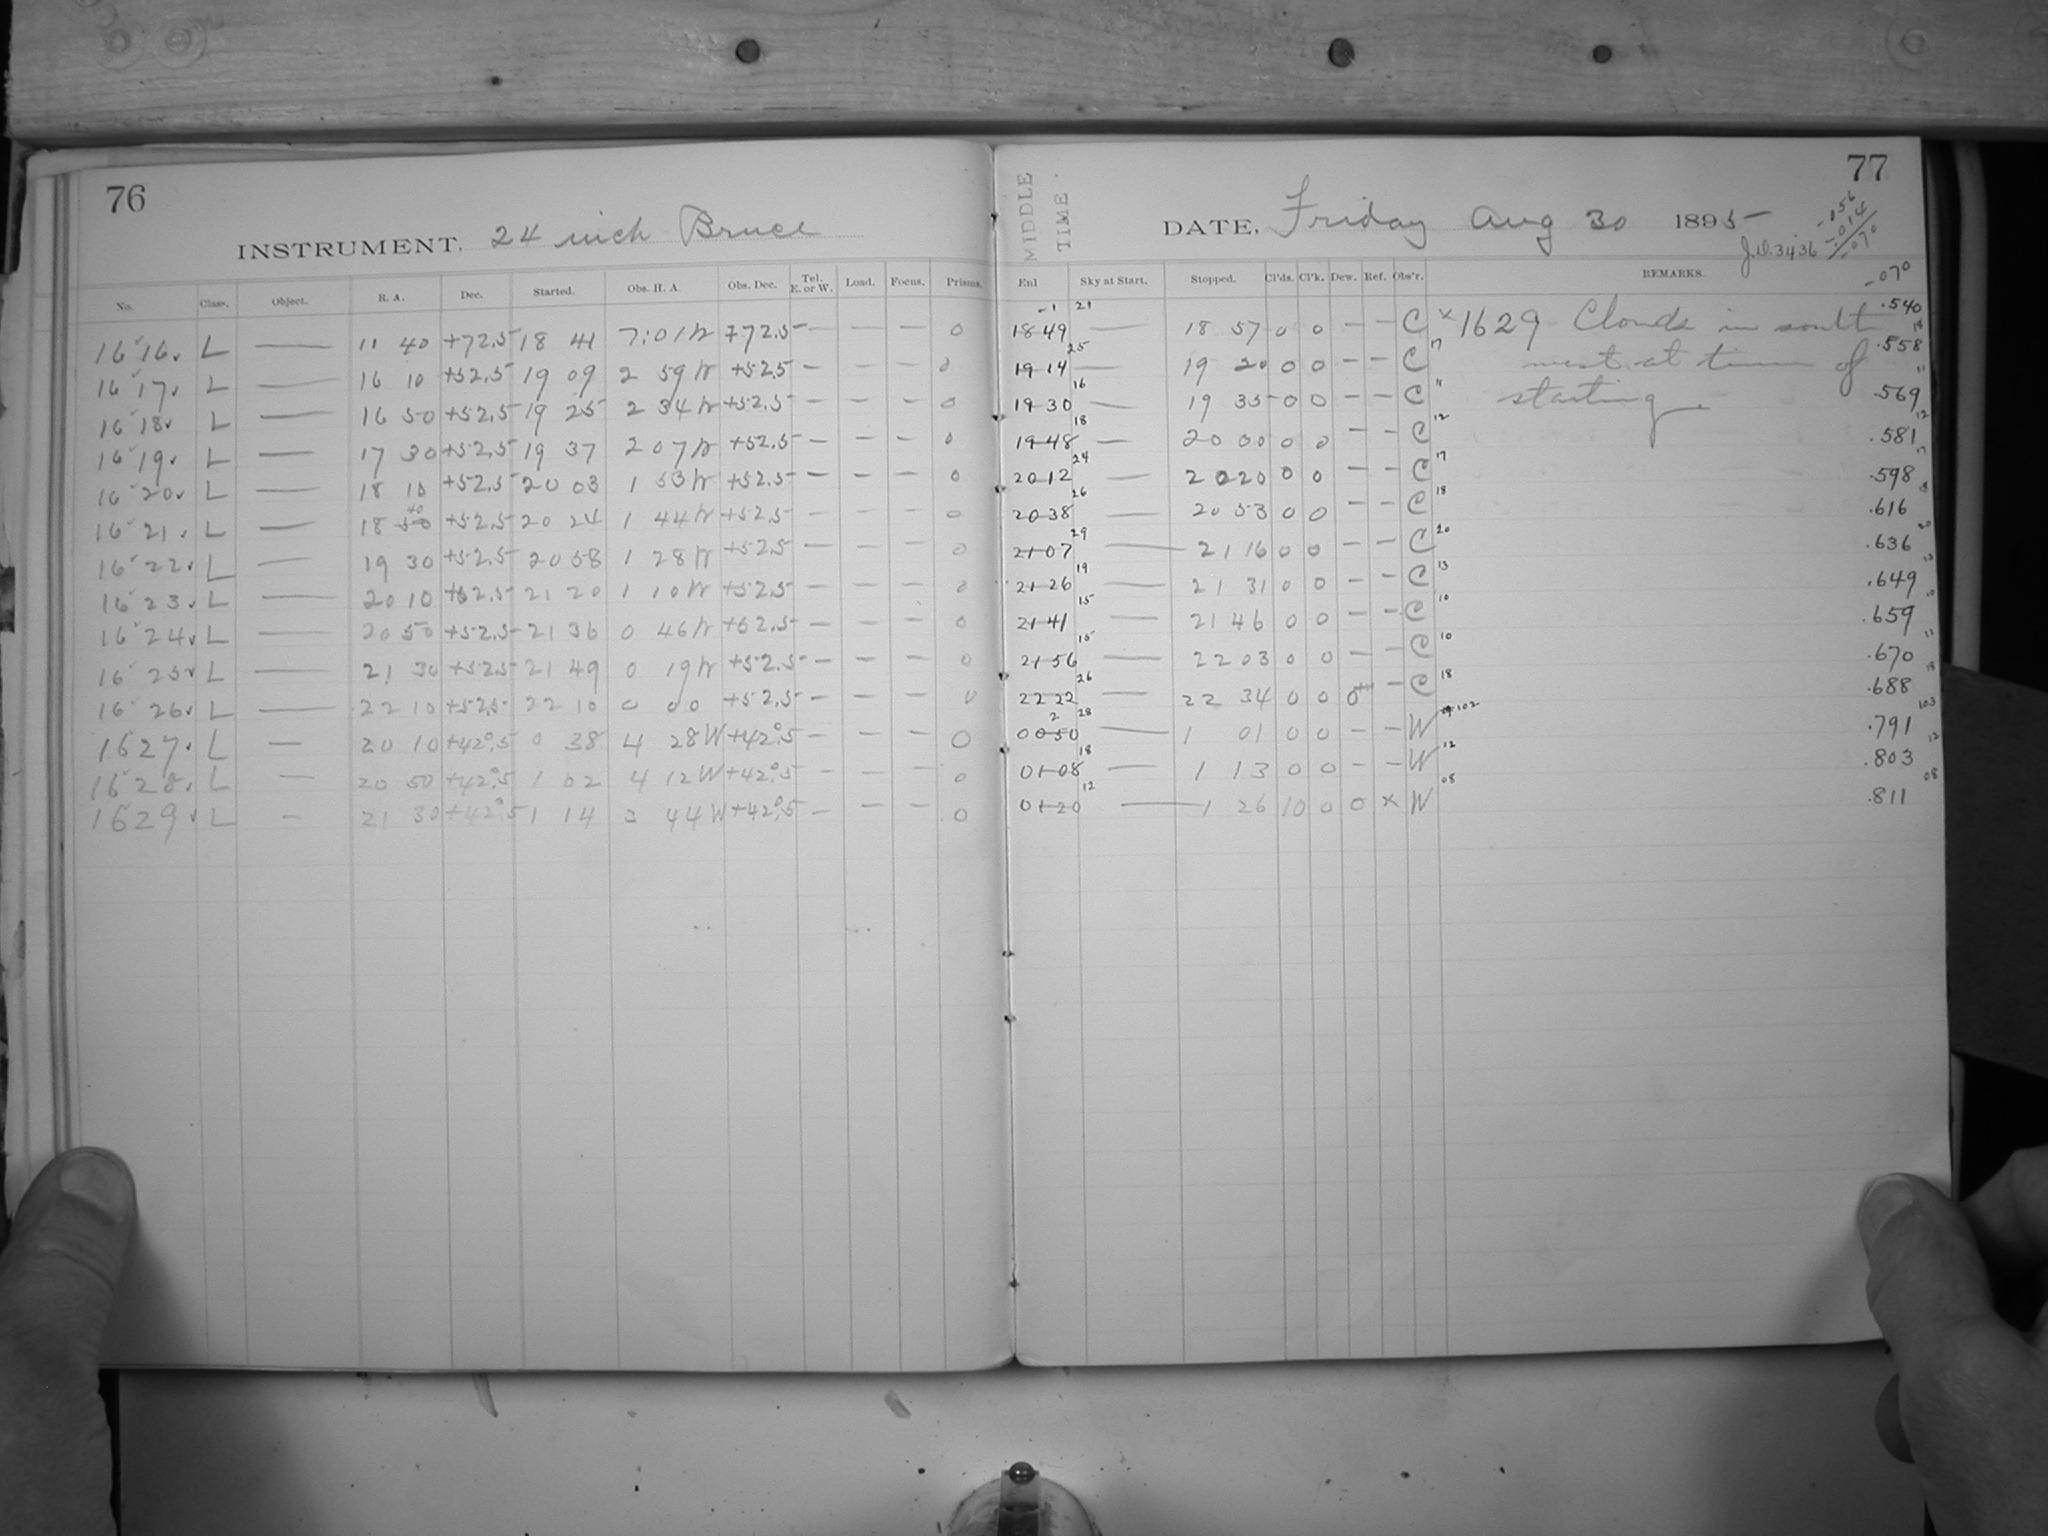 76
INSTRUMENT. 24 inch Bruce
No. Class. Object. R. A. Dec. Started. Obs. H. A. Obs. Dec. Tel. E. or W. Load. Focus. Prisms.
1616. L — 11 40 +72.5 18 41 7:01W +72.5 — — — 0
1617. L — 16 10 +52.5 19 09 2 59W +52.5 — — — 0
1618. L — 16 50 +52.5 19 25 2 34W +52.5 — — — 0
1619. L — 17 30 +52.5 19 37 2 07W +52.5 — — — 0
1620. L — 18 10 +52.5 20 03 1 53W +52.5 — — — 0
1621. L — 18 50 40 +52.5 20 24 1 44W +52.5 — — — 0
1622. L — 19 30 +52.5 20 58 1 28W +52.5 — — — 0
1623. L — 20 10 +52.5 21 20 1 10W +52.5 — — — 0
1624. L — 20 50 +52.5 21 36 0 46W +52.5 — — — 0
1625. L — 21 30 +52.5 21 49 0 19W +52.5 — — — 0
1626. L — 22 10 +52.5 22 10 0 00 +52.5 — — — 0
1627. L — 20 10 +42°.5 0 38 4 28W +42°.5 — — — 0
1628. L — 20 50 +42°.5 1 02 4 12W +42°.5 — — — 0
1629. L — 21 30 +42°.5 1 14 3 44W +42°.5 — — — 0
77
MIDDLE TIME
DATE, Friday Aug 30 1895
-.056
-.014
-.070
J.D. 3436
Enl Sky at Start. Stopped. Cl'ds. Cl'k. Dew. Ref. Obs'r. REMARKS. -.070
-1 21
18 49 — 18 57 0 0 — — C × 1629 Clouds in south .540
19 14 25 — 19 20 0 0 — — C 17 west at time of .558
19 30 16 — 19 35 0 0 — — C 11 starting. .569
19 48 18 — 20 00 0 0 — — C 12 .581
20 12 24 — 20 20 0 0 — — C 17 .598
20 38 26 — 20 53 0 0 — — C 18 .616
21 07 29 — 21 16 0 0 — — C 20 .636
21 26 19 — 21 31 0 0 — — C 13 .649
21 41 15 — 21 46 0 0 — — C 10 .659
21 56 15 — 22 03 0 0 — — C 10 .670
22 22 26 — 22 34 0 0 0 — C 18 .688
00 50 2 28 — 1 01 0 0 — — W 102 .791 103
01 08 18 — 1 13 0 0 — — W 12 .803 12
01 20 12 — 1 26 10 0 0 × W 08 .811 08